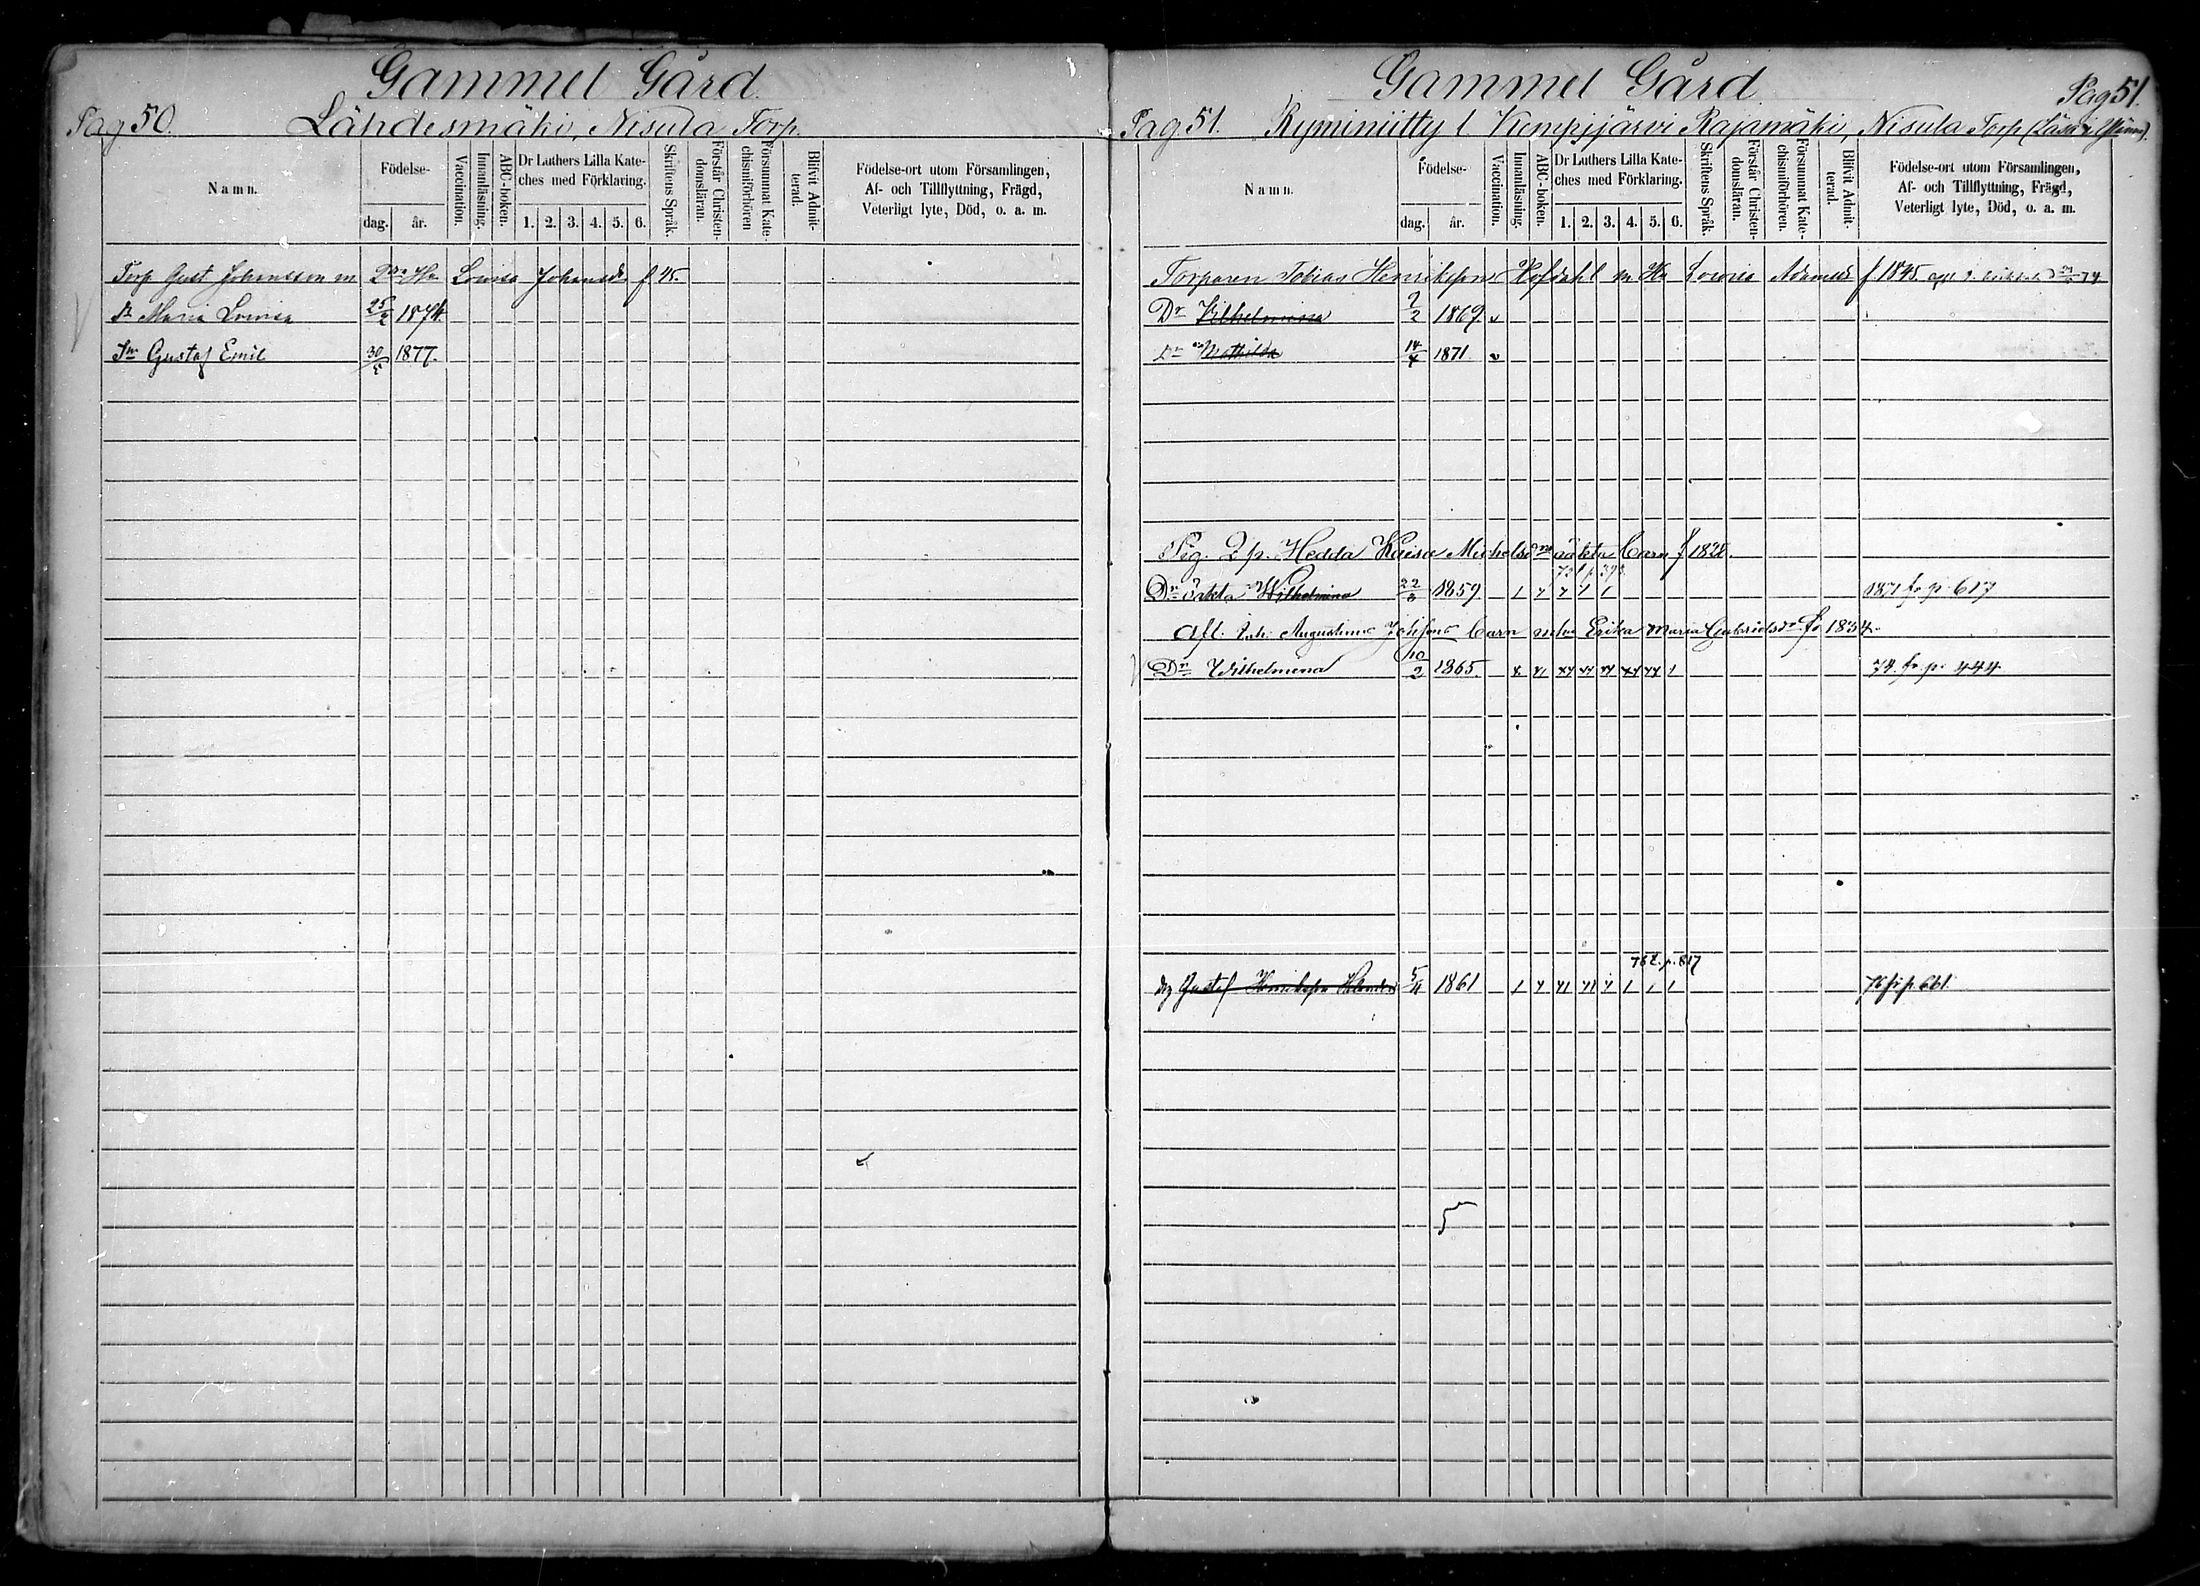 Gammel Gård
Pag 50. Lähdesmäki, Nisula Torp.
Namn.
Födelse-
dag. år.
Vaccination.
Innanläsning.
ABC-boken.
Dr Luthers Lilla Kate-
ches med Förklaring.
1. 2. 3. 4. 5. 6.
Skriftens Språk.
Förstår Christen-
domsläran.
Försummat Kate-
chismiförhören
Blifvit Admit-
terad.
Födelse-ort utom Församlingen,
Af- och Tillflyttning, Frägd,
Veterligt lyte, Död, o. a. m.
Torp Gust Johansson m Hu Lovisa Johansdr f 45.
Dr Maria Lovisa 25/2 1874.
Sn Gustaf Emil 30/5 1877.
Gammel Gård
Pag 51.
Pag 51. Kyminiitty l Kempijärvi Rajamäki, Nisula Torp
Namn.
Födelse-
dag. år.
Vaccination.
Innanläsning.
ABC-boken.
Dr Luthers Lilla Kate-
ches med Förklaring.
1. 2. 3. 4. 5. 6.
Skriftens Språk.
Förstår Christen-
domsläran.
Försummat Kate-
chismiförhören.
Blifvit Admit-
terad.
Födelse-ort utom Församlingen,
Af- och Tillflyttning, Frägd,
Veterligt lyte, Död, o. a. m.
Torparen Tobias Henriksson Hofdahl m Hu Lovisa Adamsdr f 1845
Dr Vilhelmina 2/2 1869. v
Dr Mathilda 14/4 1871 v
Pig. Hedda Kaisa Michelsdr oäkta barn f 1828.
72 t p. 393.
Dr oäkta Wilhelmina 22/8 1859 1871 fr p. 617
Afl. Inh. Augustinus Josefsons barn Erika Maria Gabrielsdr f 1834.
Dr Wilhelmina 10/2 1865. 74. fr. p. 444
78 t. p. 817
Gustaf Henriksson Helander 5/11 1861 76 fr p. 661.
5